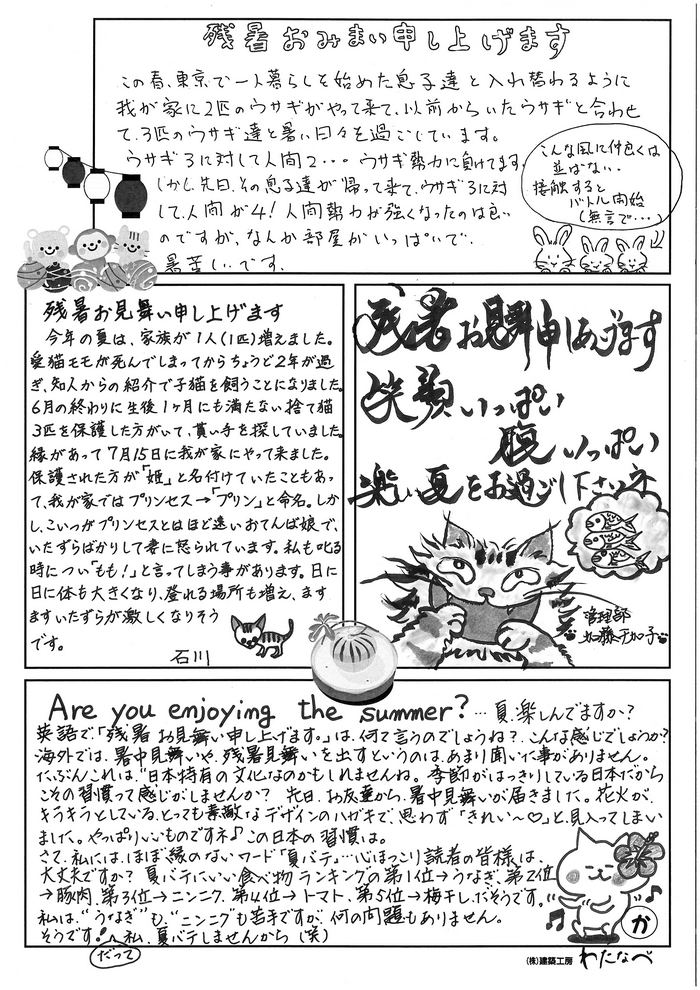 残暑おみまい申し上げます
この春、東京で一人暮らしを始めた息子達と入れ替わるように
我が家に2匹のウサギがやって来て、以前からいたウサギと合わせ
て、3匹のウサギ達と暑い日々を過ごしています。
ウサギ3に対して人間2・・・ウサギ勢力に負けてます。
しかし、先日、その息子達が帰って来て、ウサギ3に対
して、人間が4！人間勢力が強くなったのは良い
のですが、なんか部屋がいっぱいで、
暑苦しいです。
こんな風に仲良くは
並ばない。
接触すると
バトル開始
（無言で・・・）
残暑お見舞い申し上げます
今年の夏は、家族が1人(1匹)増えました。
愛猫モモが死んでしまってからちょうど2年が過
ぎ、知人からの紹介で子猫を飼うことになりました。
6月の終わりに生後1ヶ月にも満たない捨て猫
3匹を保護した方がいて、貰い手を探していました。
縁があって7月15日に我が家にやって来ました。
保護された方が「姫」と名付けていたこともあっ
て、我が家ではプリンセス→「プリン」と命名。しか
し、こいつがプリンセスとはほど遠いおてんば娘で、
いたずらばかりして妻に怒られています。私も叱る
時につい「もも！」と言ってしまう事があります。日に
日に体も大きくなり、登れる場所も増え、ます
ますいたずらが激しくなりそう
です。
石川
残暑お見舞申しあげます
笑顔いっぱい
腹いっぱい
楽しい夏をお過ごし下さいネ
管理部
加藤千加子
Are you enjoying the summer? …夏、楽しんでますか？
英語で「残暑お見舞い申し上げます。」は、何て言うのでしょうね？こんな感じでしょうか？
海外では、暑中見舞いや、残暑見舞いを出すというのは、あまり聞いた事がありません。
たぶんこれは、“日本特有の文化”なのかもしれませんね。季節がはっきりしている日本だから
こその習慣って感じがしませんか？先日、お友達から、暑中見舞いが届きました。花火が、
キラキラとしている、とっても素敵なデザインのハガキで、思わず「きれい〜♡」と見入ってしまい
ました。やっぱりいいものですネ♪この日本の習慣は。
さて、私には、ほぼ縁のないワード「夏バテ」…心ほっこり読者の皆様は、
大丈夫ですか？夏バテにいい食べ物ランキングの第1位→うなぎ、第2位
→豚肉、第3位→ニンニク、第4位→トマト、第5位→梅干しだそうです。
私は、“うなぎ”も、“ニンニク”も苦手ですが、何の問題もありません。
そうです！だって私、夏バテしませんから（笑）
か
(株)建築工房 わたなべ